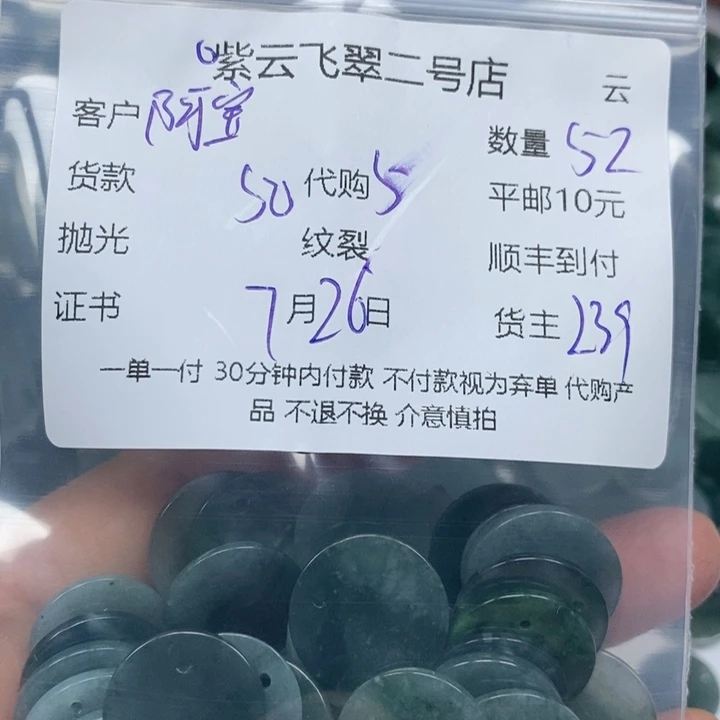 紫云飞翠二号店 云
客户 阿宝 数量 52
货款 50 代购 5 平邮10元
抛光 纹裂 顺丰到付
证书 7月26日 货主 239
一单一付 30分钟内付款 不付款视为弃单 代购产
品 不退不换 介意慎拍